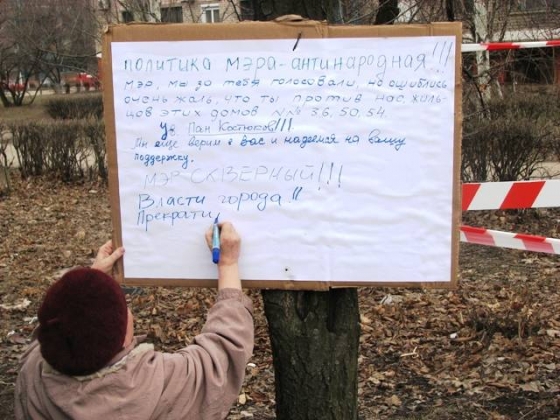 ПОЛИТИКА МЭРА-АНТИНАРОДНАЯ!!!
МЭР, МЫ ЗА ТЕБЯ ГОЛОСОВАЛИ, НО ОШИБЛИСЬ
ОЧЕНЬ ЖАЛЬ, ЧТО ТЫ ПРОТИВ НАС ЖИЛЬ-
ЦОВ ЭТИХ ДОМОВ N N 36, 50, 54
Ув. Пан Костюков!!!
Мы еще верим в Вас и надеемся на вашу
поддержку.
МЭР СКВЕРНЫЙ!!!
Власти города!!
Прекрати